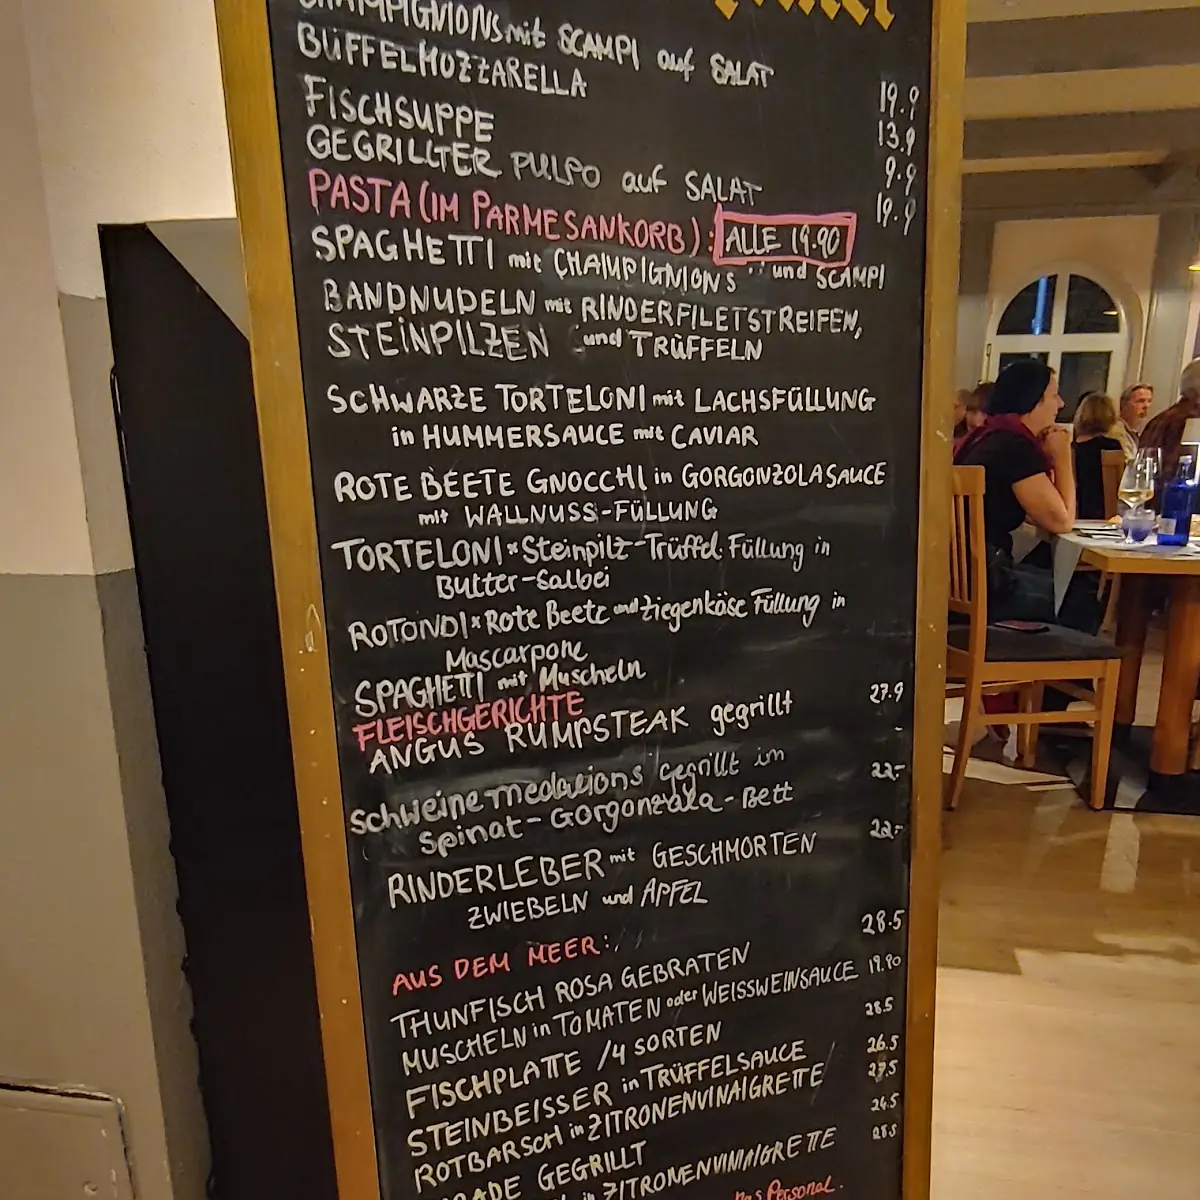 CHAMPIGNIONS mit SCAMPI auf SALAT 19.9
BÜFFELMOZZARELLA 13.9
FISCHSUPPE 9.9
GEGRILLTER PULPO auf SALAT 19.9
PASTA (IM PARMESANKORB): ALLE 19.90
SPAGHETTI mit CHAMPIGNIONS und SCAMPI
BANDNUDELN mit RINDERFILETSTREIFEN,
STEINPILZEN und TRÜFFELN
SCHWARZE TORTELONI mit LACHSFÜLLUNG
in HUMMERSAUCE mit CAVIAR
ROTE BEETE GNOCCHI in GORGONZOLASAUCE
mit WALLNUSS-FÜLLUNG
TORTELONI * Steinpilz-Trüffel Füllung in
Butter-Salbei
ROTONDI * Rote Beete und Ziegenkäse Füllung in
Mascarpone
SPAGHETTI mit Muscheln
FLEISCHGERICHTE
ANGUS RUMPSTEAK gegrillt 27.9
schweine medalions gegrillt im
Spinat-Gorgonzala-Bett 22.-
RINDERLEBER mit GESCHMORTEN 22.-
ZWIEBELN und APFEL
AUS DEM MEER:
THUNFISCH ROSA GEBRATEN 28.5
MUSCHELN in TOMATEN oder WEISSWEINSAUCE 19.90
FISCHPLATTE /4 SORTEN 28.5
STEINBEISSER in TRÜFFELSAUCE 26.5
ROTBARSCH in ZITRONENVINAIGRETTE 27.5
GEGRILLT 24.5
in ZITRONENVINAIGRETTE 28.5
Personal.